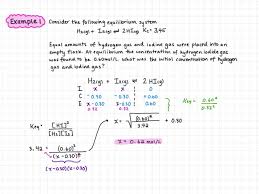 Example 1
Consider the following equilibrium system
H₂(g) + I₂(g) ⇌ 2 HI(g) Kc = 3.45
Equal amounts of hydrogen gas and iodine gas were placed into an
empty flask. At equilibrium the concentration of hydrogen iodide gas
was found to be 0.60 mol/L. what was the initial concentration of hydrogen
gas and iodine gas?
H₂(g) + I₂(g) ⇌ 2 HI(g)
I X X 0
C -0.30 -0.30 +0.60
E X-0.30 X-0.30 0.60
Keq = [HI]² / [H₂][I₂]
3.42 = (0.60)² / (X-0.30)²
(X-0.30)(X-0.30)
X = √((0.60)² / 3.42) + 0.30
X = 0.62 mol/L